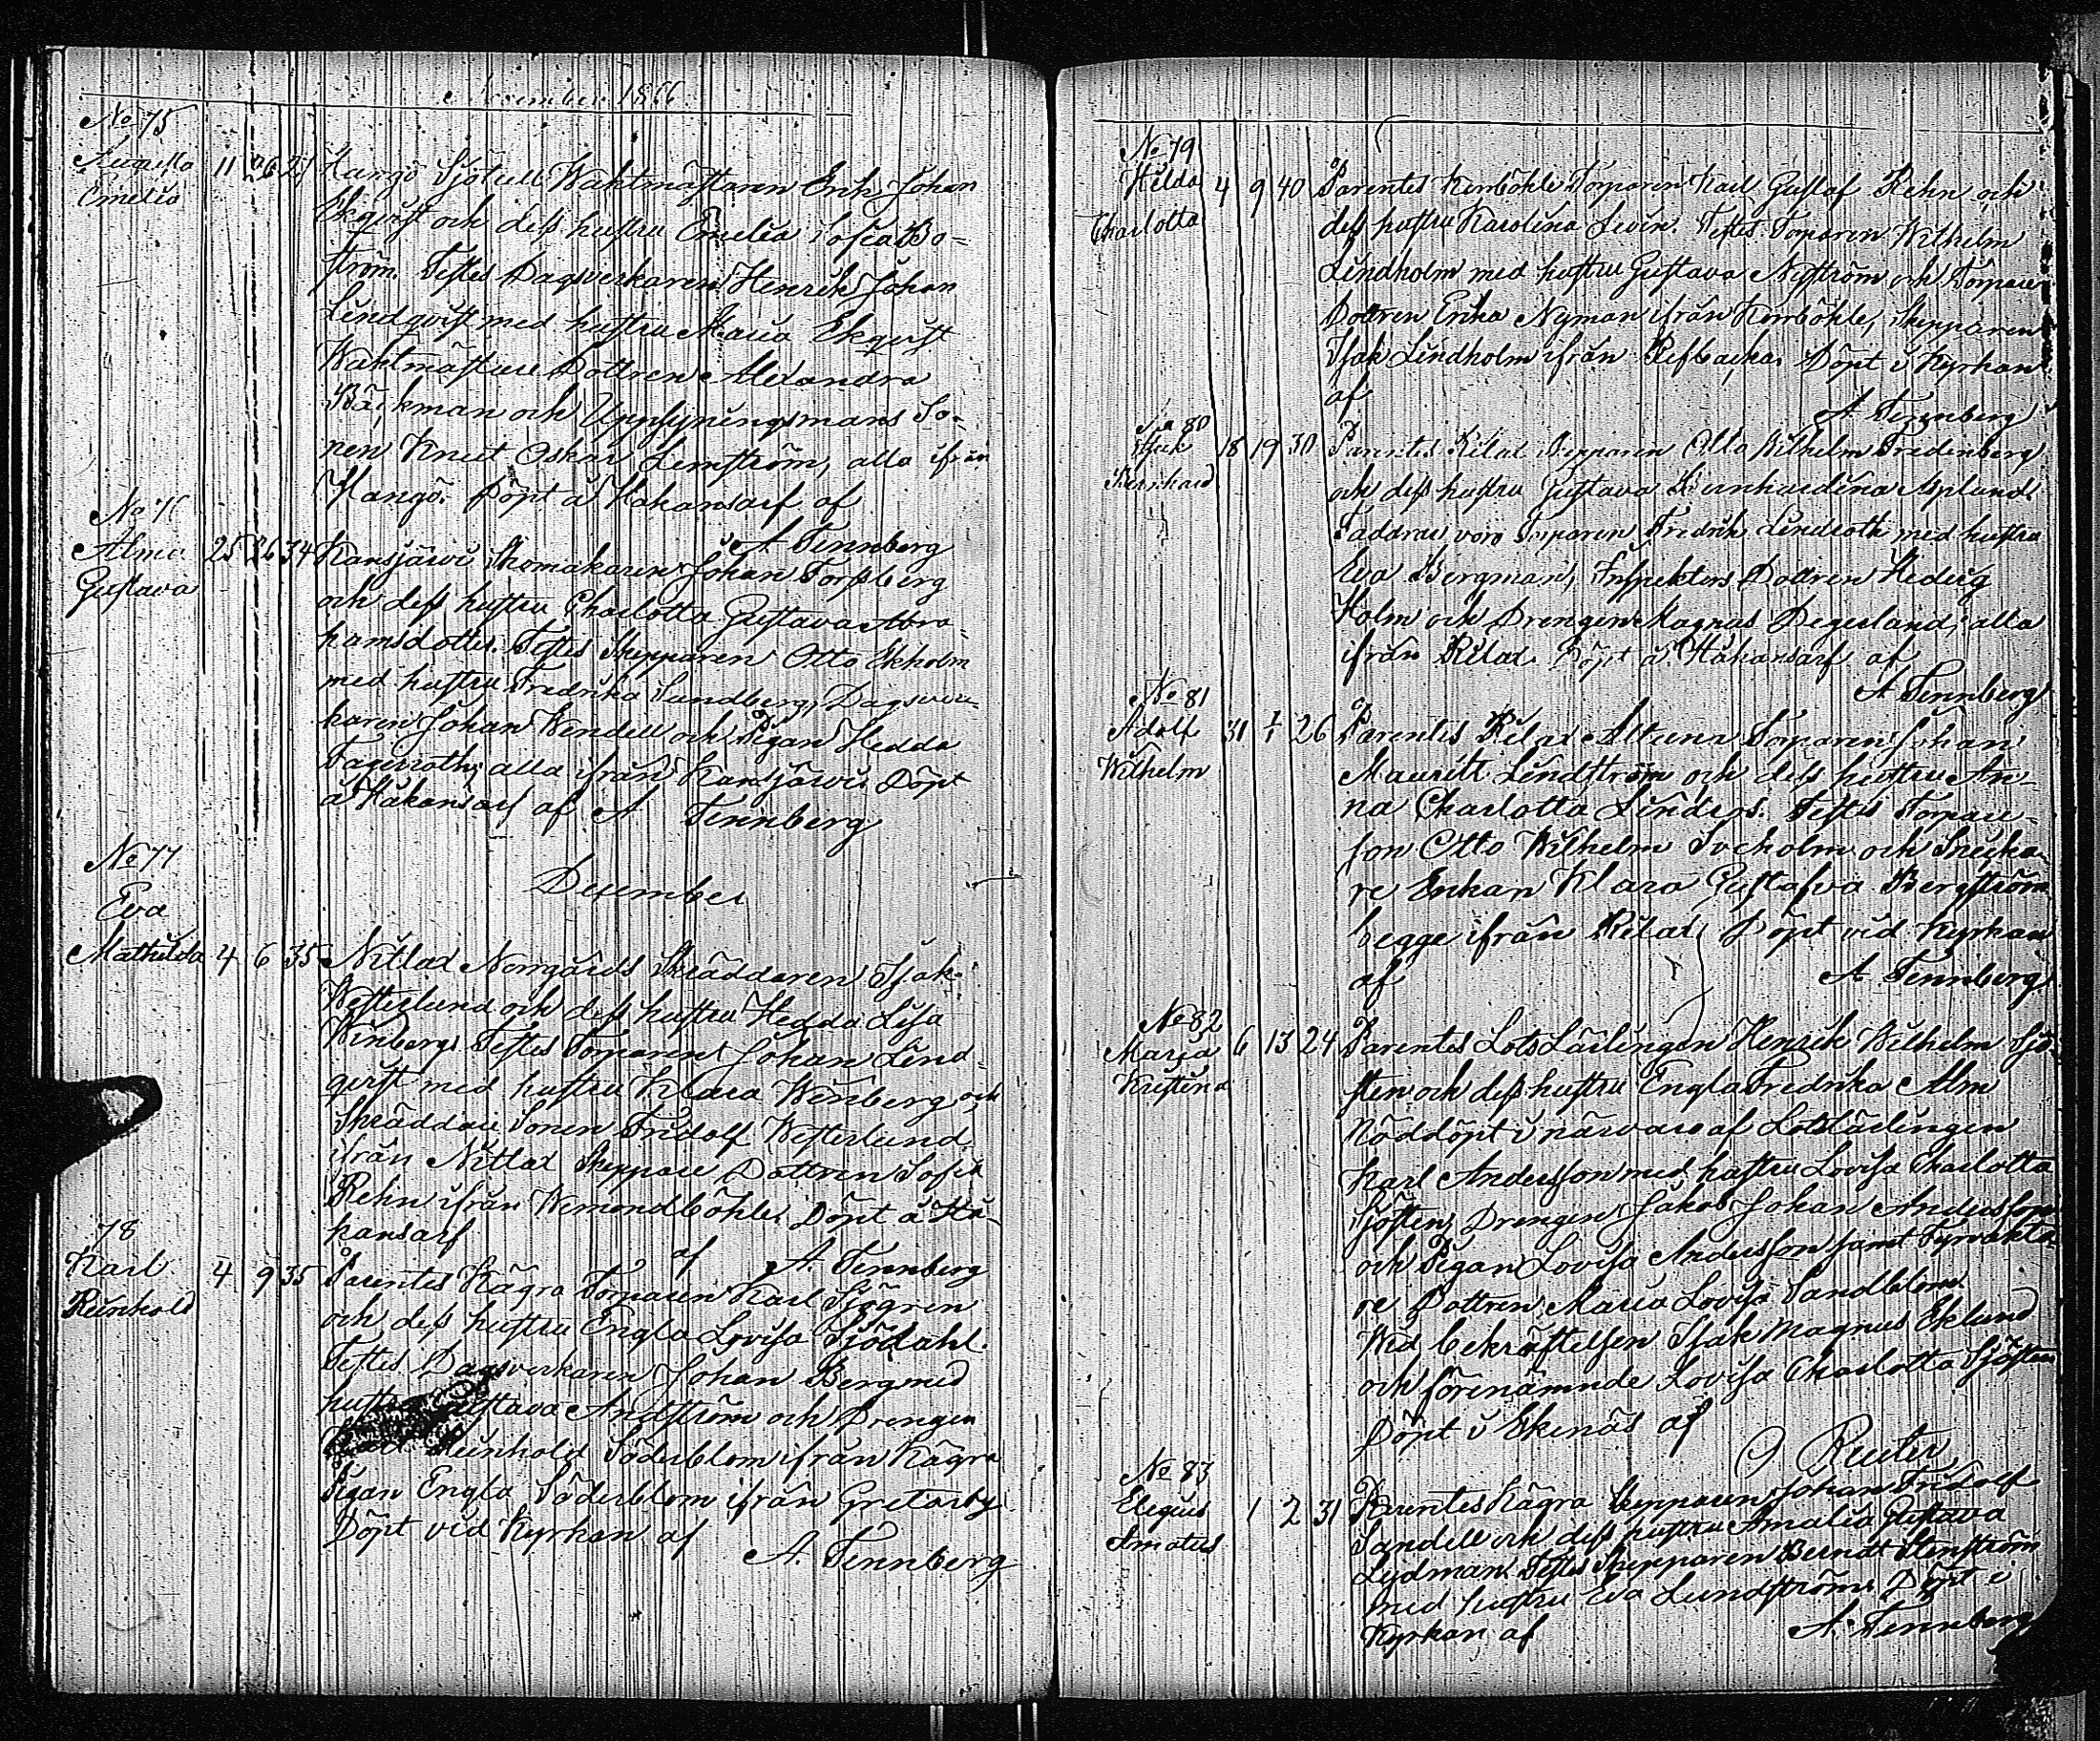 November 1866
No 75
Emelia 11 26 21 Hangö Sjötull Wahtmästaren Erik Johan
Ekqvist och dess hustru Emelia Sofia Bo=
ström. Testes Dagsverkaren Henrik Johan
Lindqvist med hustru Maria Ekqvist
Wahtmästare Dottren Alexandra
Bäckman och Uppsyningsmans So=
nen Knut Oskar Lemström, alla ifrån
Hangö. Döpt å Håkansarf af
A Tennberg
No 76
Alma Gustava 25 26 34 Kansjärvi Skomakaren Johan Forssberg
och dess hustru Charlotta Gustava Abra=
hamsdotter. Testes Skepparen Otto Ekholm
med hustru Fredrika Sundberg, Dagsver=
karen Johan Wendell och Pigan Hedda
Fageroth, alla ifrån Kansjärvi. Döpt
å Håkansarf af A Tennberg
No 77
December
Eva
Mathilda 4 6 35 Nitlax Norrgårds Skräddaren Isak
Westerlund och dess hustru Hedda Lisa
Winberg. Testes Torparen Johan Lind=
qvist med hustru Klara Winberg och
Skräddare Sonen Fridolf Westerlund
ifrån Nitlax Skeppare Dottren Sofia
Rehn ifrån Wemondböhle. Döpt å Hå=
kansarf af A Tennberg
78
Karl
Reinhold 4 9 35 Parentes Kägra Torparen Karl Sjögren
och dess hustru Engla Lovisa Sjödahl.
Testes Dagsverkaren Johan Berg med
hustru Gustava Andström och Drengen
Reinhold Söderblom ifrån Kägra
Pigan Engla Söderblom ifrån Gretarby
Döpt vid Kyrkan af
A. Tennberg
No 79
Hilda
Charlotta 4 9 40 Parentes Kernböhle Torparen Karl Gustaf Rehn och
dess hustru Karolina Levin. Testes Torparen Wilhelm
Lindholm med hustru Gustava Nyström och Torpare
Dottren Erika Nyman ifrån Kernböhle, Skepparen
Isak Lindholm ifrån Refbacka. Döpt i Kyrkan
af
A. Tennberg
No 80
Bernhard 18 19 30 Parentes Rilax Skepparen Otto Wilhelm Fredenberg
och dess hustru Gustava Bernhardina Asplund.
Faddrar voro Torparen Fredrik Lindroth med hustru
Eva Bergman, Inspektors Dottren Hedvig
Holm och Drengen Magnus Degerland, alla
ifrån Rilax. Döpt å Håkansarf af
A Tennberg
No 81
Adolf
Wilhelm 31 1/1 26 Parentes Rilax Torparen Johan
Mauritz Lindström och dess hustru An=
na Charlotta Lindros. Testes Torpare=
son Otto Wilhelm Sveholm och Snicka=
re Enkan Klara Gustafva Bergström
begge ifrån Rilax, Döpt vid Kyrkan
af A. Tennberg
No 82
Maria
Kristina 6 13 24 Parentes Lots Lärlingen Henrik Wilhelm Sjö=
sten och dess hustru Engla Fredrika Alm
Nöddöpt i närvaro af Lotslärlingen
Karl Andersson med hustru Lovisa Charlotta
Sjösten, Drengen Jakob Johan Andersson
och Pigan Lovisa Andersson samt Fyrvakta=
re Dottren Maria Lovisa Sandblom.
Wid bekräftelsen Isak Magnus Eklund
och förenämnde Lovisa Charlotta Sjösten
Döpt i Ekenäs af
O Reuter
No 83
Elegius
Amatus 1 2 31 Parentes Kägra Skepparen Johan Fridolf
Sandell och dess hustru Amalia Gustava
Lydman. Testes Skepparen Berndt Stenström
med hustru Eva Lundström. Döpt i
Kyrkan af A. Tennberg